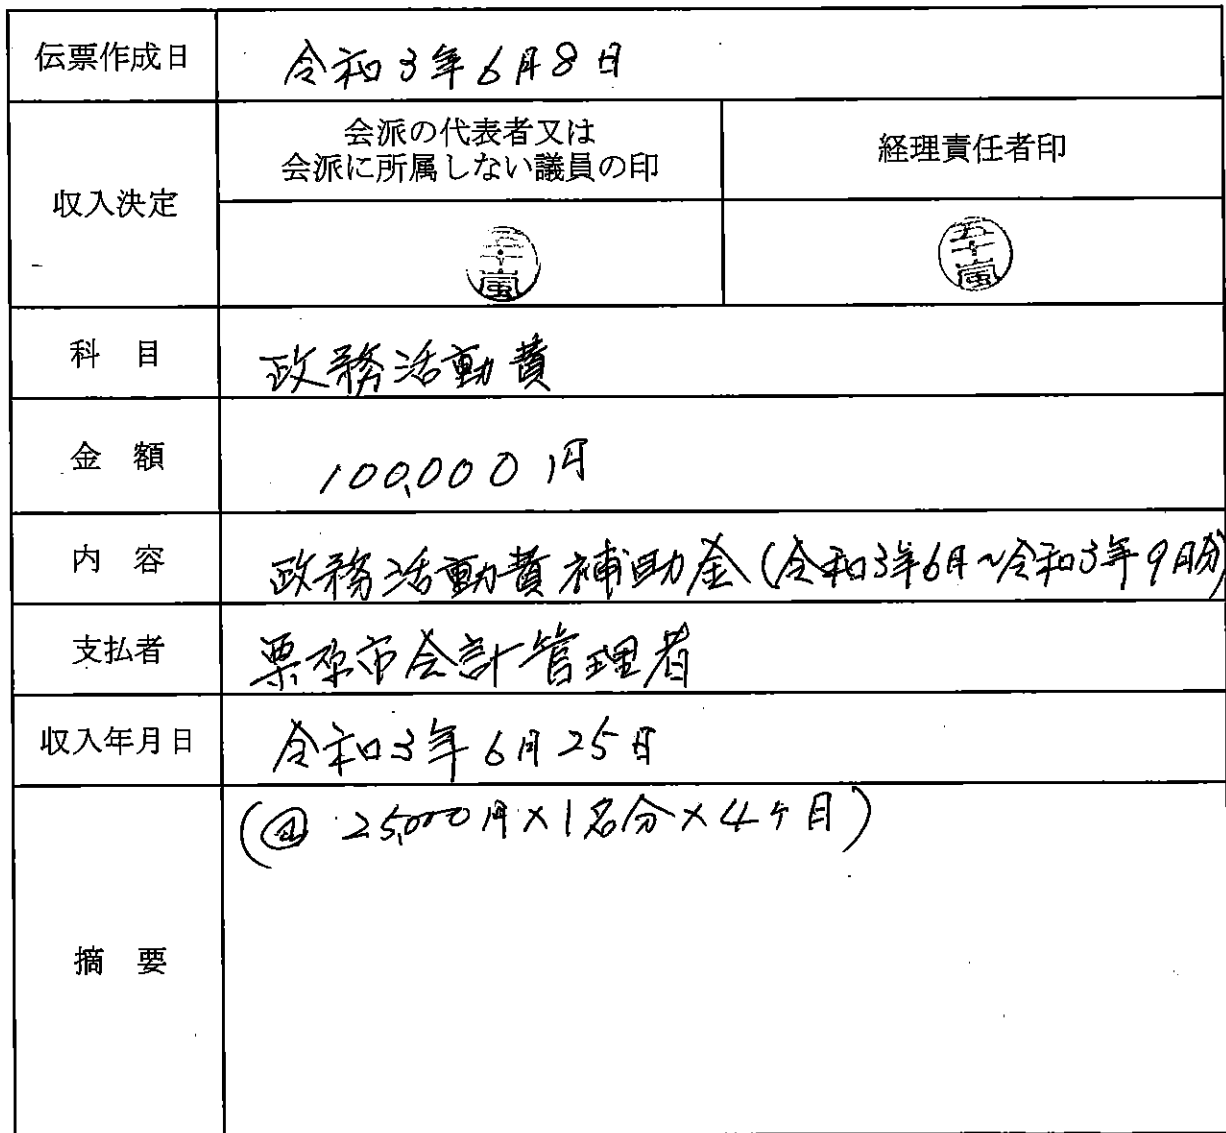 伝票作成日 令和3年6月8日
収入決定
会派の代表者又は
会派に所属しない議員の印
経理責任者印
五十嵐
五十嵐
科 目 政務活動費
金 額 100,000円
内 容 政務活動費補助金(令和3年6月~令和3年9月分)
支払者 栗原市会計管理者
収入年月日 令和3年6月25日
摘 要
(@ 25,000円×1名分×4ケ月)